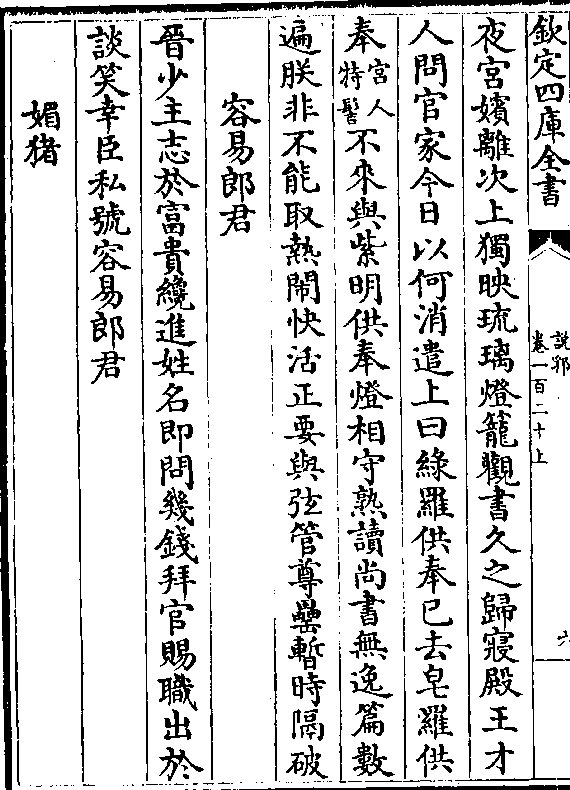 欽定四庫全書
說郛
卷一百二十上
六
夜宮嬪離次上獨映琉璃燈籠觀書久之歸寢殿王才
人問官家今日以何消遣上曰綠羅供奉已去皂羅供
奉宮人特髻不來與紫明供奉燈相守熟讀尚書無逸篇數
遍朕非不能取熱鬧快活正要與弦管尊罍暫時隔破
容易郎君
晉少主志於富貴纔進姓名即問幾錢拜官賜職出於
談笑幸臣私號容易郎君
媚豬